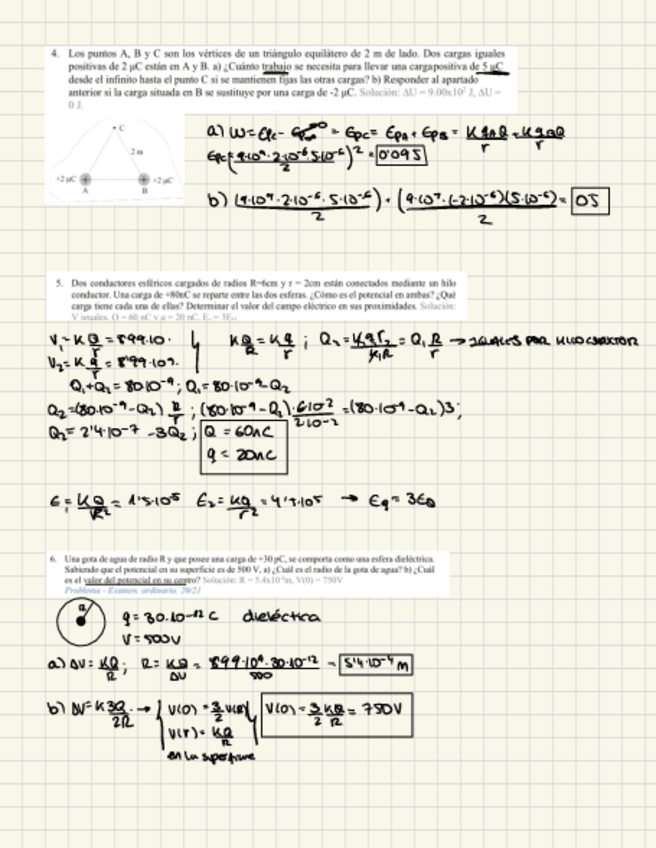 4. Los puntos A, B y C son los vértices de un triángulo equilátero de 2 m de lado. Dos cargas iguales
positivas de 2 μC están en A y B. a) ¿Cuánto trabajo se necesita para llevar una carga positiva de 5 μC
desde el infinito hasta el punto C si se mantienen fijas las otras cargas? b) Responder al apartado
anterior si la carga situada en B se sustituye por una carga de -2 μC. Solución: ΔU = 9.00x10² J, ΔU =
0 J.
C
2 m
+2 μC
+2 μC
A
B
a) W = Epc - = Epc = EpA + EpB =
Epc = (9·10⁹·2·10⁻⁶·5·10⁻⁶/2)² = 0'09J
b) (9·10⁹·2·10⁻⁶·5·10⁻⁶)/2 + (9·10⁹·(-2·10⁻⁶)(5·10⁻⁶)/2 = 0J
5. Dos conductores esféricos cargados de radios R=6cm y r = 2cm están conectados mediante un hilo
conductor. Una carga de +80nC se reparte entre las dos esferas. ¿Cómo es el potencial en ambas? ¿Qué
carga tiene cada una de ellas? Determinar el valor del campo eléctrico en sus proximidades. Solución:
V iguales, Q = 60 nC y q = 20 nC,
V₁ = K Q/r = 8'99·10
V₂ = K q/r = 8'99·10⁹·
KQ/R = Kq/r ; = Q₁ R/r → IGUALES POR HILO
Q₁+Q₂ = 80·10⁻⁹; Q₁ = 80·10⁻⁹-Q₂
Q₂=(80·10⁻⁹-Q₂) R/r ; (80·10⁻⁹-Q₂)·6·10⁻²/2·10⁻² = (80·10⁻⁹-Q₂)3;
Q₂ = 2'4·10⁻⁷ -3Q₂ ; Q = 60nC
q = 20nC
E₁ = KQ/R² = 1'5·10⁵ E₂ = KQ/r² = 4'5·10⁵ → Eq = 3EQ
6. Una gota de agua de radio R y que posee una carga de +30 pC, se comporta como una esfera dieléctrica.
Sabiendo que el potencial en su superficie es de 500 V, a) ¿Cuál es el radio de la gota de agua? b) ¿Cuál
es el valor del potencial en su centro? Solución: R = 5.4x10⁻⁴m, V(0) = 750V
Problema - Examen ordinario 20/21
q = 30·10⁻¹² C dieléctrica
V = 500V
a) ΔV = KQ/R ; R = KQ/ΔV = 8'99·10⁹·30·10⁻¹²/500 = 5'4·10⁻⁴ m
b) ΔV = K3Q/2R → V(0) = 3/2 V(R) V(0) = 3/2 KQ/R = 750V
V(r) = KQ/R
en la superficie